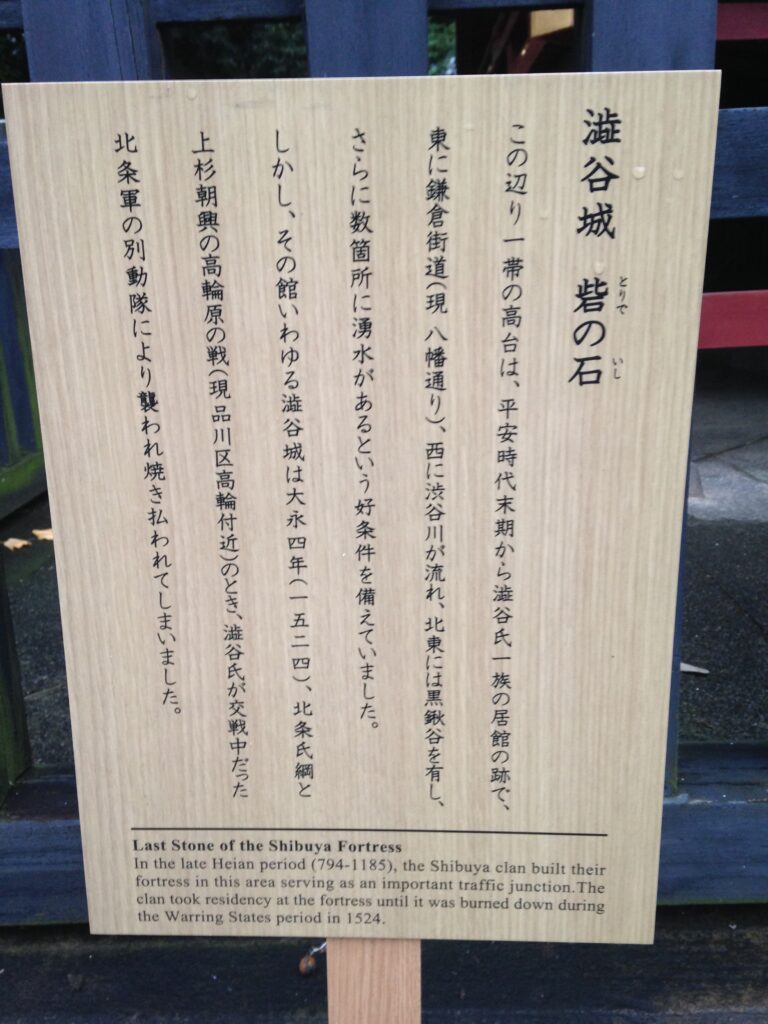 澁谷城 砦の石
とりで
いし
この辺り一帯の高台は、平安時代末期から澁谷氏一族の居館の跡で、
東に鎌倉街道(現 八幡通り)、西に渋谷川が流れ、北東には黒鍬谷を有し、
さらに数箇所に湧水があるという好条件を備えていました。
しかし、その館いわゆる澁谷城は大永四年(一五二四)、北条氏綱と
上杉朝興の高輪原の戦(現品川区高輪付近)のとき、澁谷氏が交戦中だった
北条軍の別動隊により襲われ焼き払われてしまいました。
Last Stone of the Shibuya Fortress
In the late Heian period (794-1185), the Shibuya clan built their
fortress in this area serving as an important traffic junction.The
clan took residency at the fortress until it was burned down during
the Warring States period in 1524.